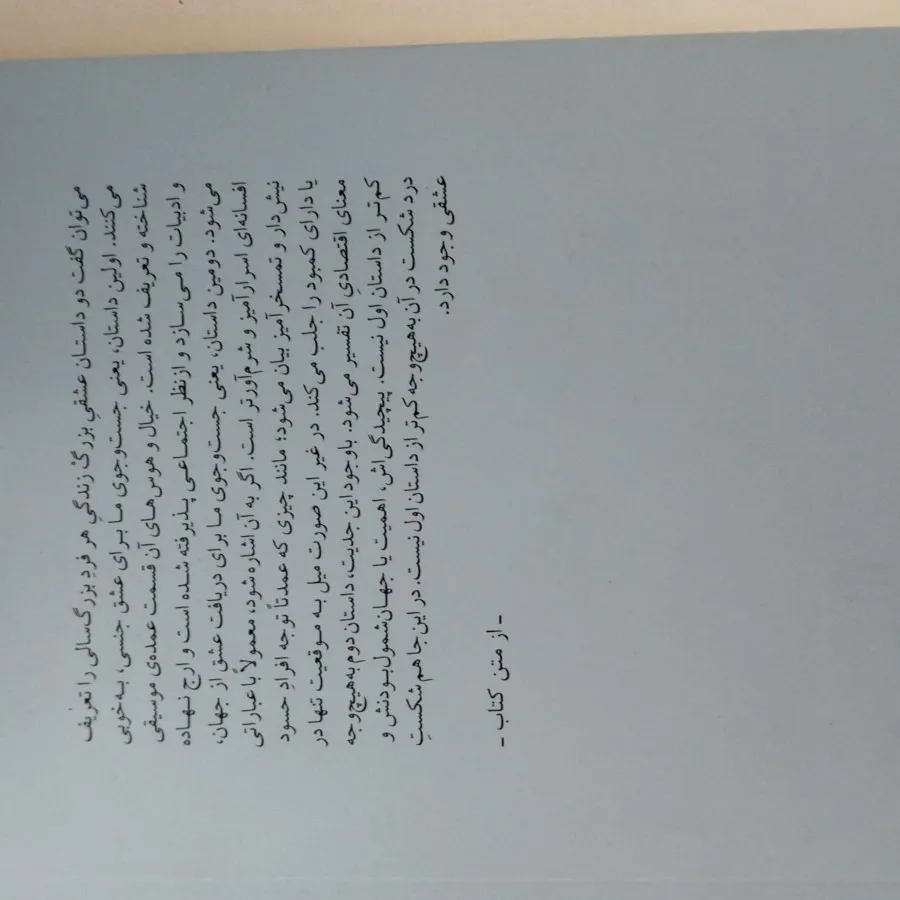 می‌توان گفت دو داستان عشقیِ بزرگْ زندگیِ هر فردِ بزرگ‌سالی را تعریف
می‌کنند. اولین داستان، یعنی جست‌وجوی ما برای عشق جنسی، به‌خوبی
شناخته و تعریف شده است. خیال و هوس‌های آن قسمت عمده‌ی موسیقی
و ادبیات را می‌سازد و ازنظر اجتماعی پذیرفته شده است و ارج نهاده
می‌شود. دومین داستان، یعنی جست‌وجوی ما برای دریافت عشق از جهان،
افسانه‌ای اسرارآمیز و شرم‌آورتر است. اگر به آن اشاره شود، معمولاً با عباراتی
نیش‌دار و تمسخرآمیز بیان می‌شود؛ مانند چیزی که عمدتاً توجه افرادِ حسود
یا دارای کمبود را جلب می‌کند. در غیر این صورت میل به موقعیت تنها در
معنای اقتصادیِ آن تفسیر می‌شود. باوجوداین جدیت، داستان دوم به‌هیچ‌وجه
کم‌تر از داستانِ اول نیست. پیچیدگی‌اش، اهمیت یا جهان‌شمول‌بودنش و
درد شکست در آن به‌هیچ‌وجه کم‌تر از داستان اول نیست. در این‌جا هم شکستِ
عشقی وجود دارد.
- از متن کتاب -